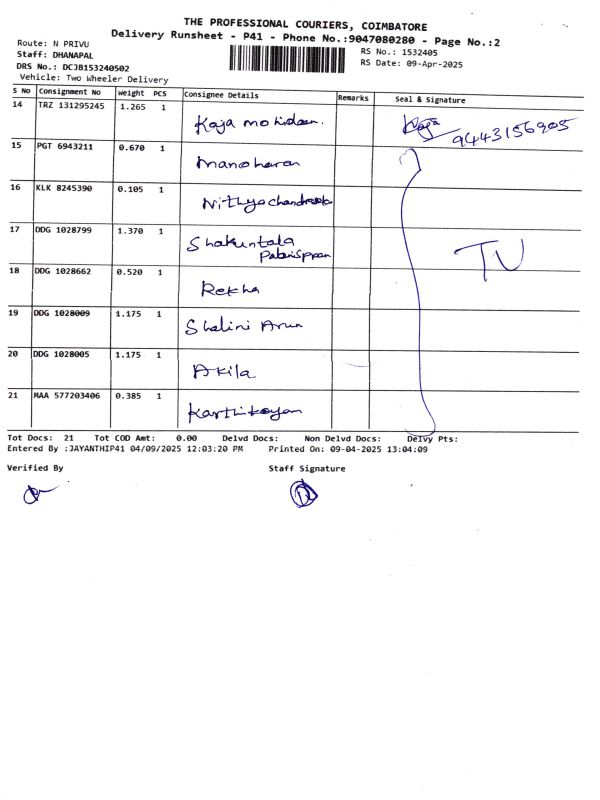 THE PROFESSIONAL COURIERS, COIMBATORE
Delivery Runsheet - P41 - Phone No.:9047080280 - Page No.:2
Route: N PRIVU
Staff: DHANAPAL
DRS No.: DCJB153240502
Vehicle: Two Wheeler Delivery
RS No.: 1532405
RS Date: 09-Apr-2025
S No Consignment No Weight PCS Consignee Details Remarks Seal & Signature
14 TRZ 131295245 1.265 1 Kaja mohideen. Kaja 9443156905
15 PGT 6943211 0.670 1 Manoharan
16 KLK 8245390 0.105 1 Nithya
17 DDG 1028799 1.370 1 Shakuntala
TU
18 DDG 1028662 0.520 1 Rekha
19 DDG 1028009 1.175 1 Shalini Arun
20 DDG 1028005 1.175 1 Akila
21 MAA 577203406 0.385 1 Karthikeyan
Tot Docs: 21 Tot COD Amt: 0.00 Delvd Docs: Non Delvd Docs: Delvy Pts:
Entered By :JAYANTHIP41 04/09/2025 12:03:20 PM Printed On: 09-04-2025 13:04:09
Verified By Staff Signature